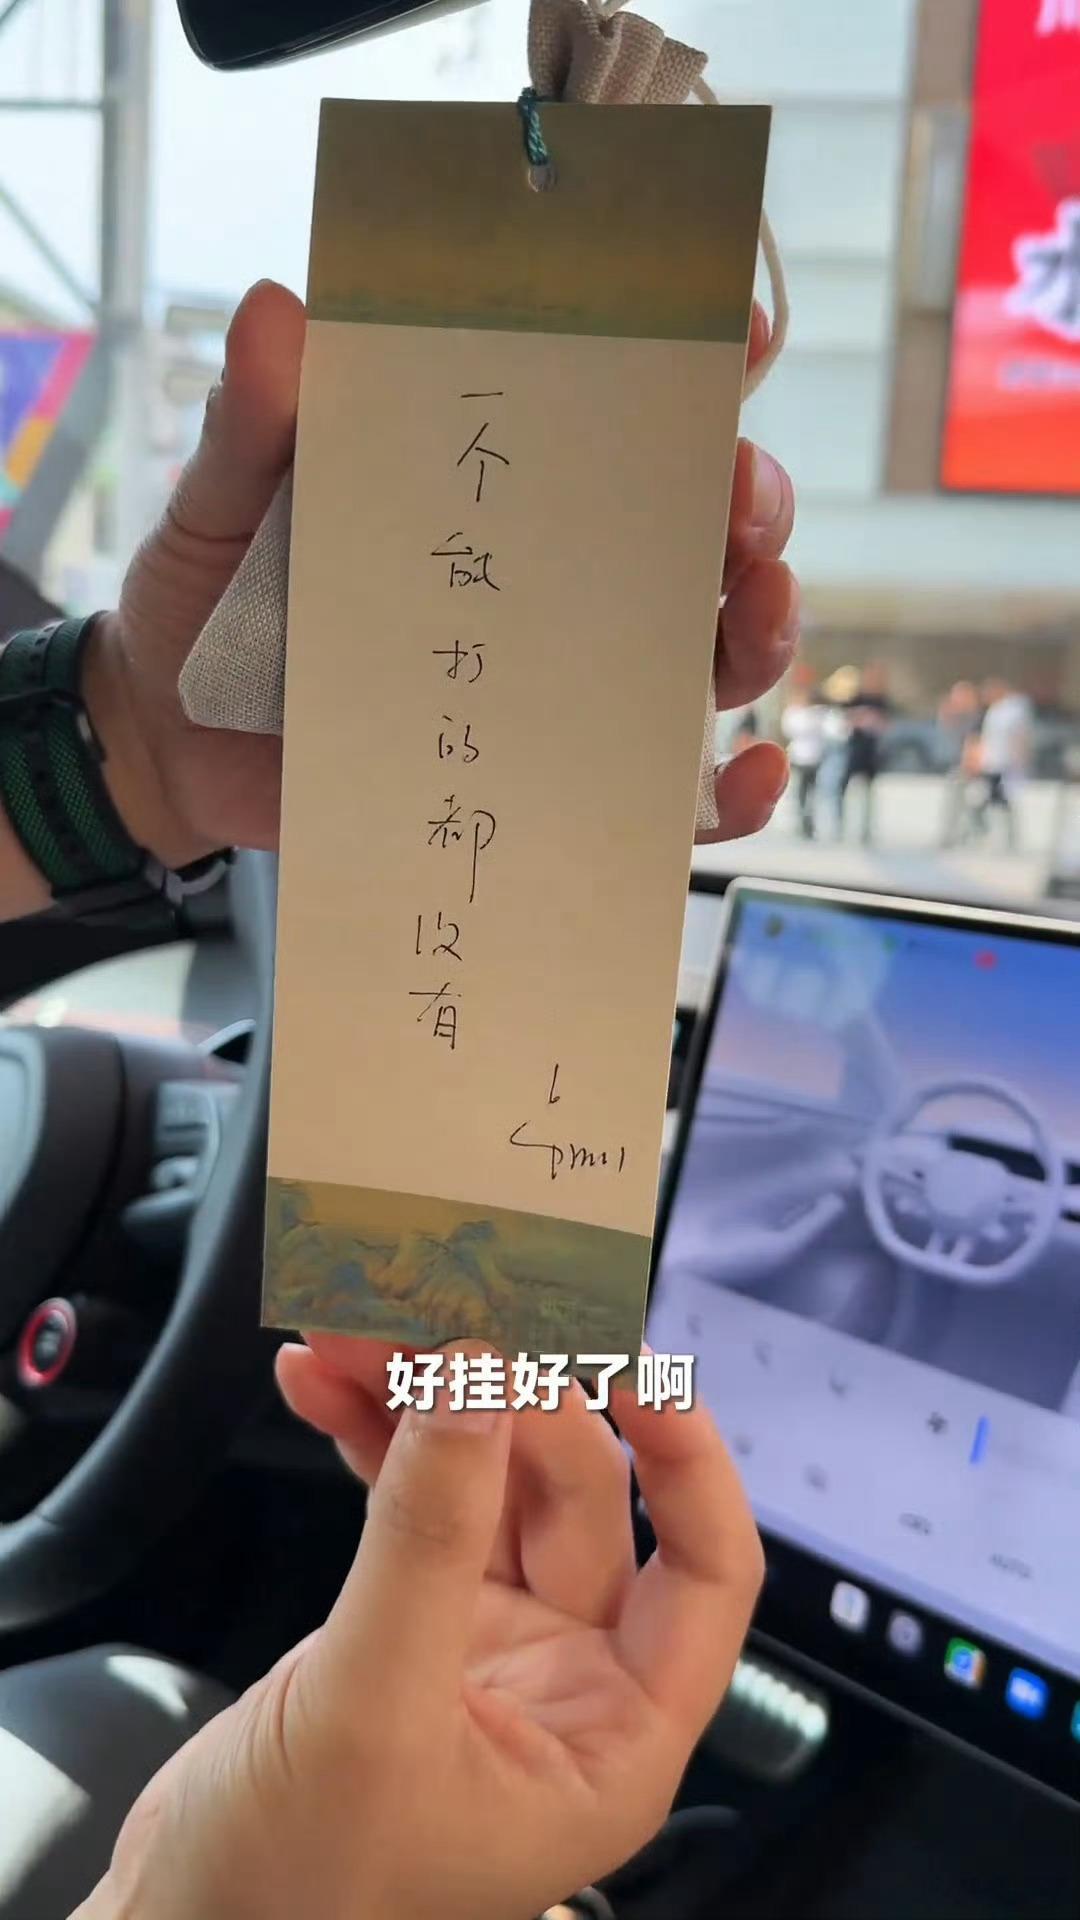 一个能打的都没有
好挂好了啊
AUTO